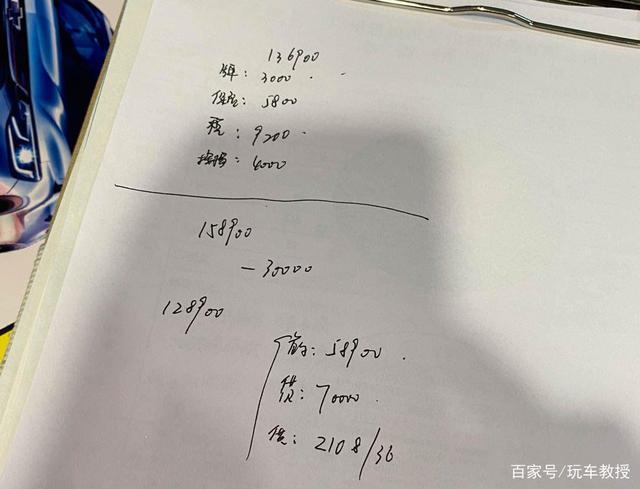 136900
牌：3000
保险：5800
税：9200
4000
158900
-30000
128900
首：58900
贷：70000
供：2108/36
百家号/玩车教授